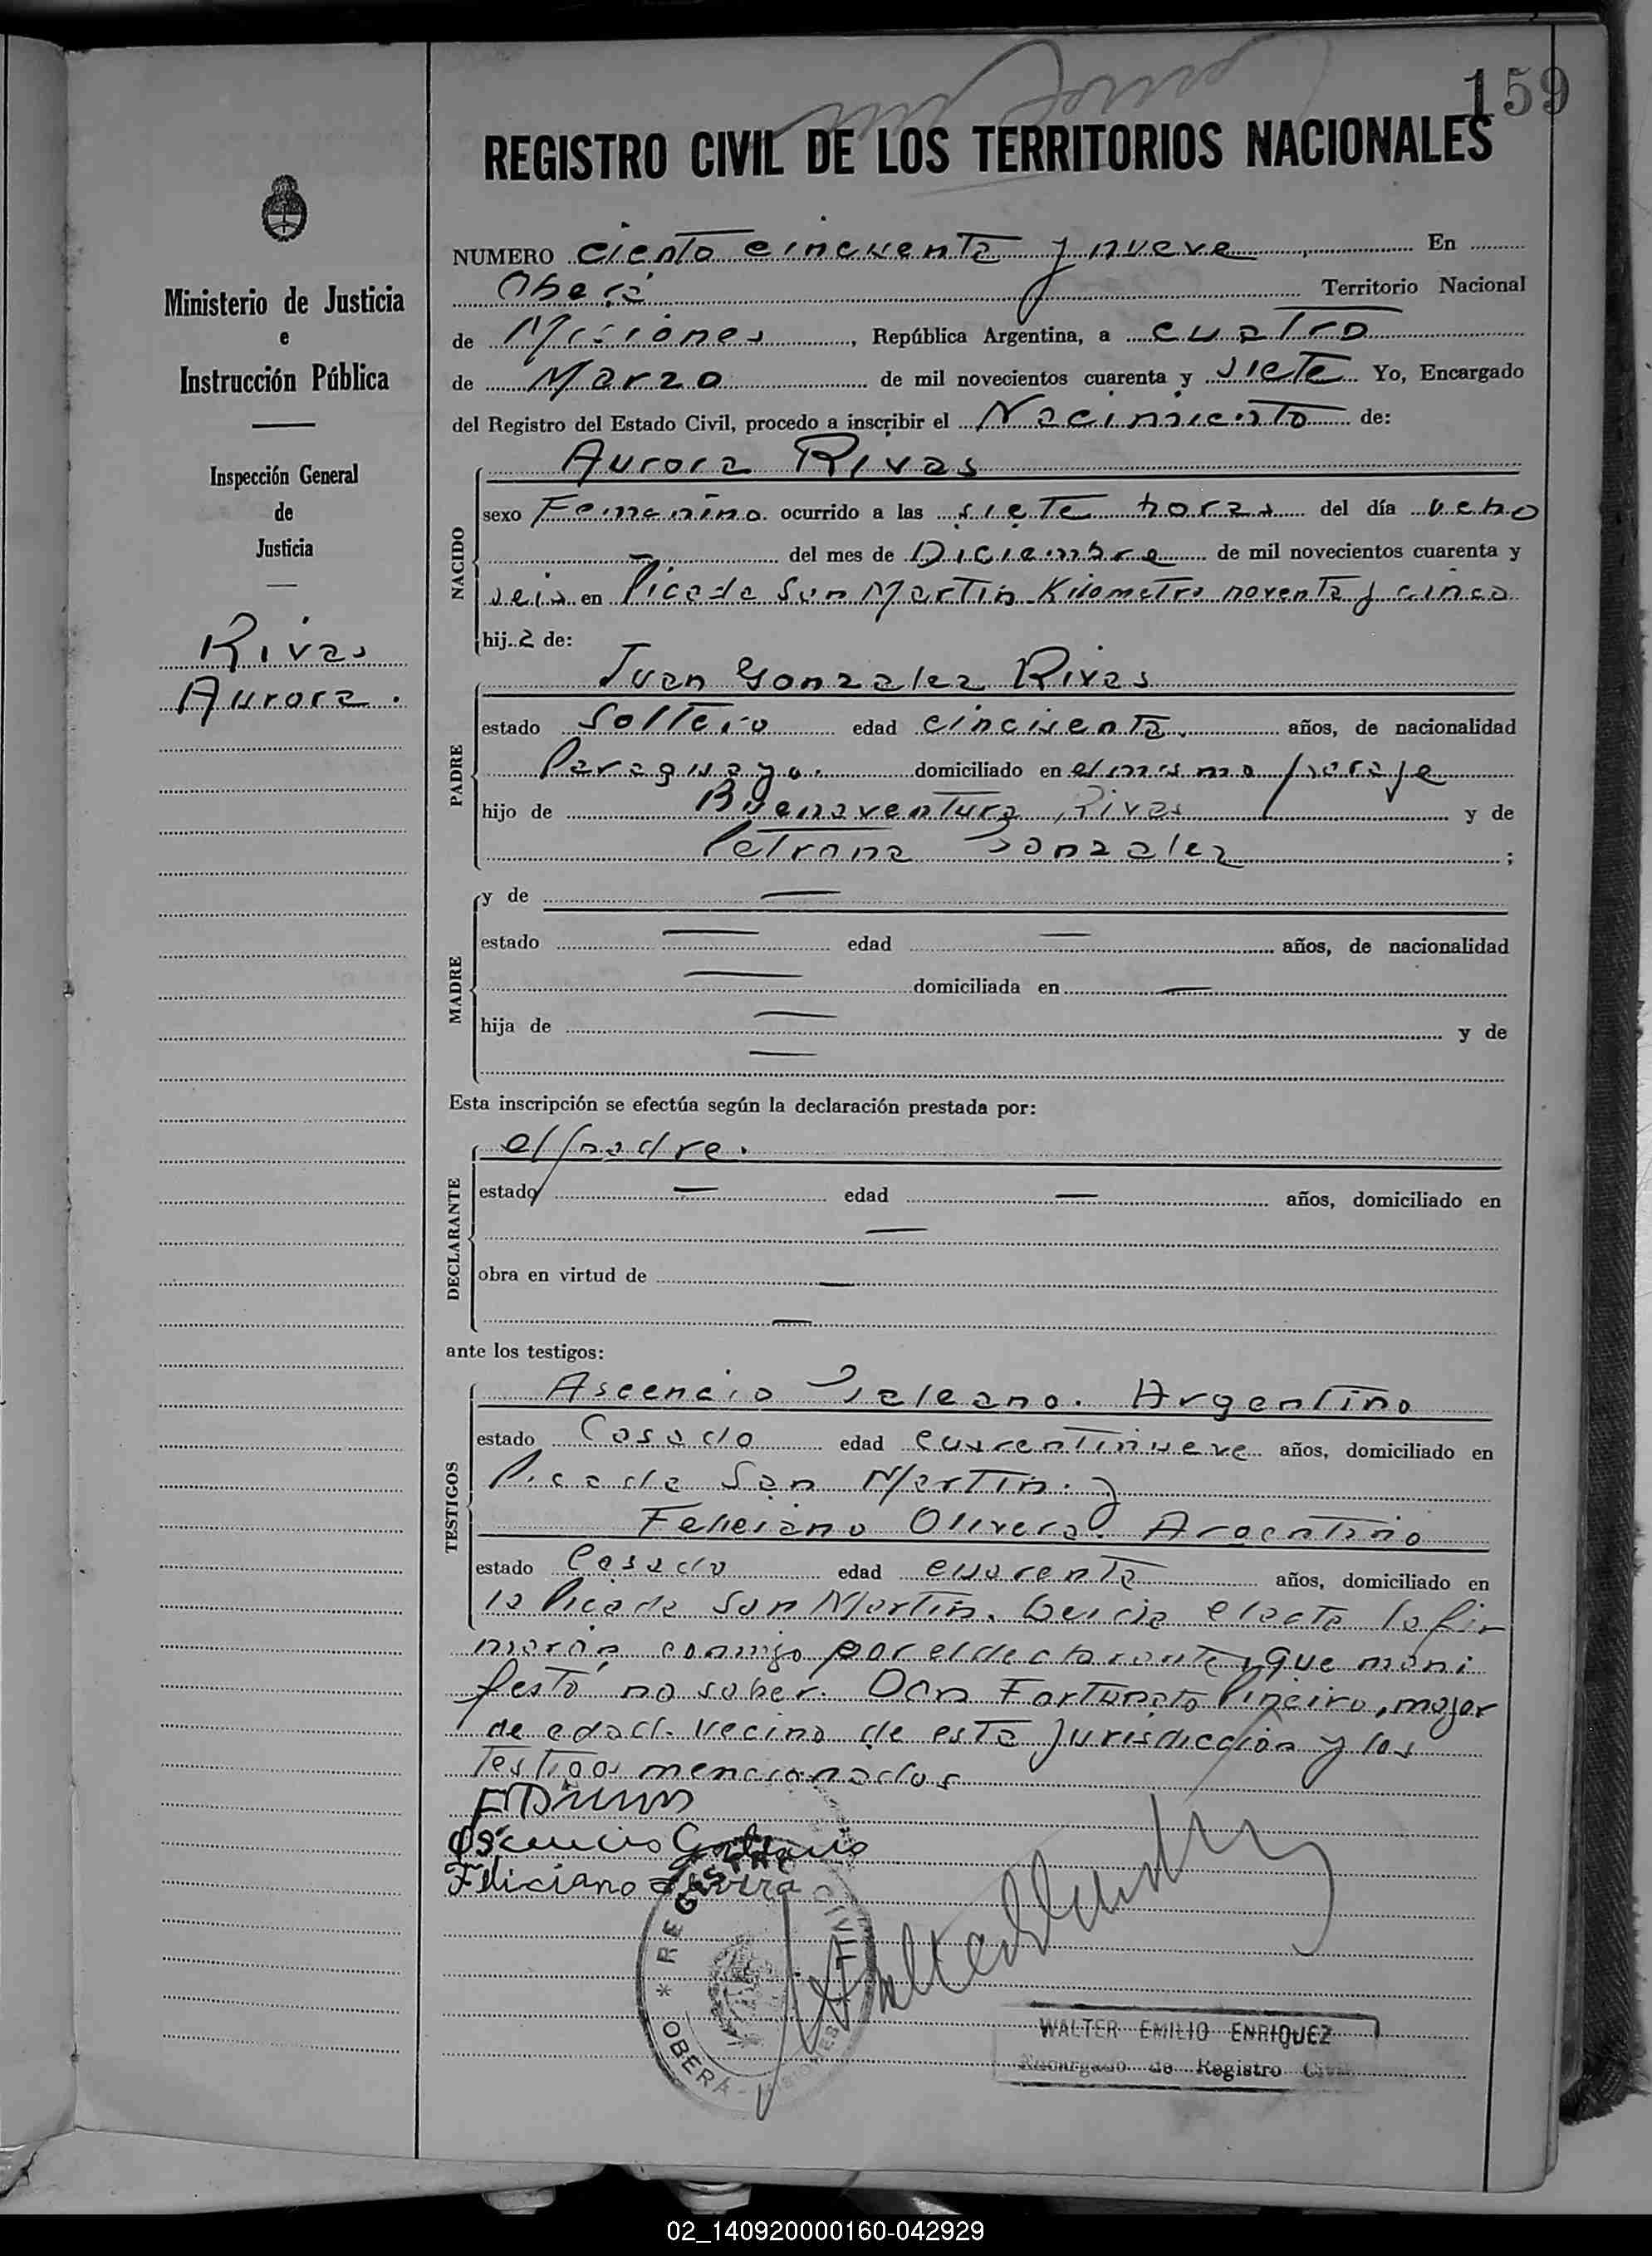 159
REGISTRO CIVIL DE LOS TERRITORIOS NACIONALES
Ministerio de Justicia
e
Instrucción Pública
Inspección General
de
Justicia
Rivas
Aurora.
NUMERO ciento cincuenta y nueve En
Oberá Territorio Nacional
de Misiones, República Argentina, a cuatro
de Marzo de mil novecientos cuarenta y siete Yo, Encargado
del Registro del Estado Civil, procedo a inscribir el Nacimiento de:
NACIDO
Aurora Rivas
sexo Femenino ocurrido a las siete horas del día ocho
del mes de Diciembre de mil novecientos cuarenta y
seis en Picada San Martín Kilometro noventa y cinco
hija de:
PADRE
Juan Gonzalez Rivas
estado Soltero edad cincuenta años, de nacionalidad
Paraguayo. domiciliado en el mismo paraje
hijo de Buenaventura Rivas y de
Petrona Gonzalez;
MADRE
y de
estado edad años, de nacionalidad
domiciliada en
hija de y de
Esta inscripción se efectúa según la declaración prestada por:
DECLARANTE
el padre.
estado edad años, domiciliado en
obra en virtud de
ante los testigos:
TESTIGOS
Ascencio Galeano. Argentino
estado Casado edad cuarentinueve años, domiciliado en
Picada San Martín. y
Feliciano Olivera. Argentino
estado Casado edad cuarenta años, domiciliado en
la Picada San Martín. Leida el acta la fir
marán conmigo por el declarante, que mani
festó no saber. Don Fortunato Piñeiro, mayor
de edad. vecino de esta jurisdicción y los
testigos mencionados
Feliciano Olivera
REGISTRO CIVIL
* OBERA -
WALTER EMILIO ENRIQUEZ
Encargado de Registro Civil
02_140920000160-042929